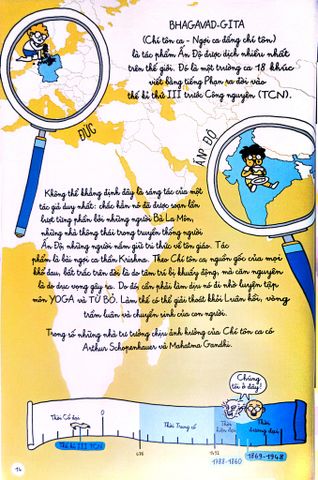 BHAGAVAD-GITA
(Chí tôn ca - Ngợi ca đấng chí tôn)
là tác phẩm Ấn Độ được dịch nhiều nhất
trên thế giới. Đó là một trường ca 18 khúc
viết bằng tiếng Phạn ra đời vào
thế kỉ thứ III trước Công nguyên (TCN).
ĐỨC
ẤN ĐỘ
Không thể khẳng định đây là sáng tác của một
tác giả duy nhất: chắc hẳn nó đã được soạn lần
lượt từng phần bởi những người Bà La Môn,
những nhà thông thái trong truyền thống người
Ấn Độ những người nắm giữ tri thức về tôn giáo. Tác
phẩm là bài ngợi ca thần Krishna. Theo Chí tôn ca, nguồn gốc của mọi
khổ đau, bất trắc trên đời là do tâm trí bị khuấy động, mà căn nguyên
là do dục vọng gây ra. Do đó, cần phải làm dịu nó đi nhờ luyện tập
môn YOGA và TỪ BỎ. Làm thế có thể giải thoát khỏi Luân hồi, vòng
trầm luân và chuyển sinh của con người.
Trong số những nhà tư tưởng chịu ảnh hưởng của Chí tôn ca có
Arthur Schopenhauer và Mahatma Gandhi.
Chúng
tôi ở đây!
Thời Cổ đại
0
Thời Trung cổ
Thời
hiện đại
Thời
đương đại
Thế kỉ III TCN
476
1492
1788-1860
1869-1948
14